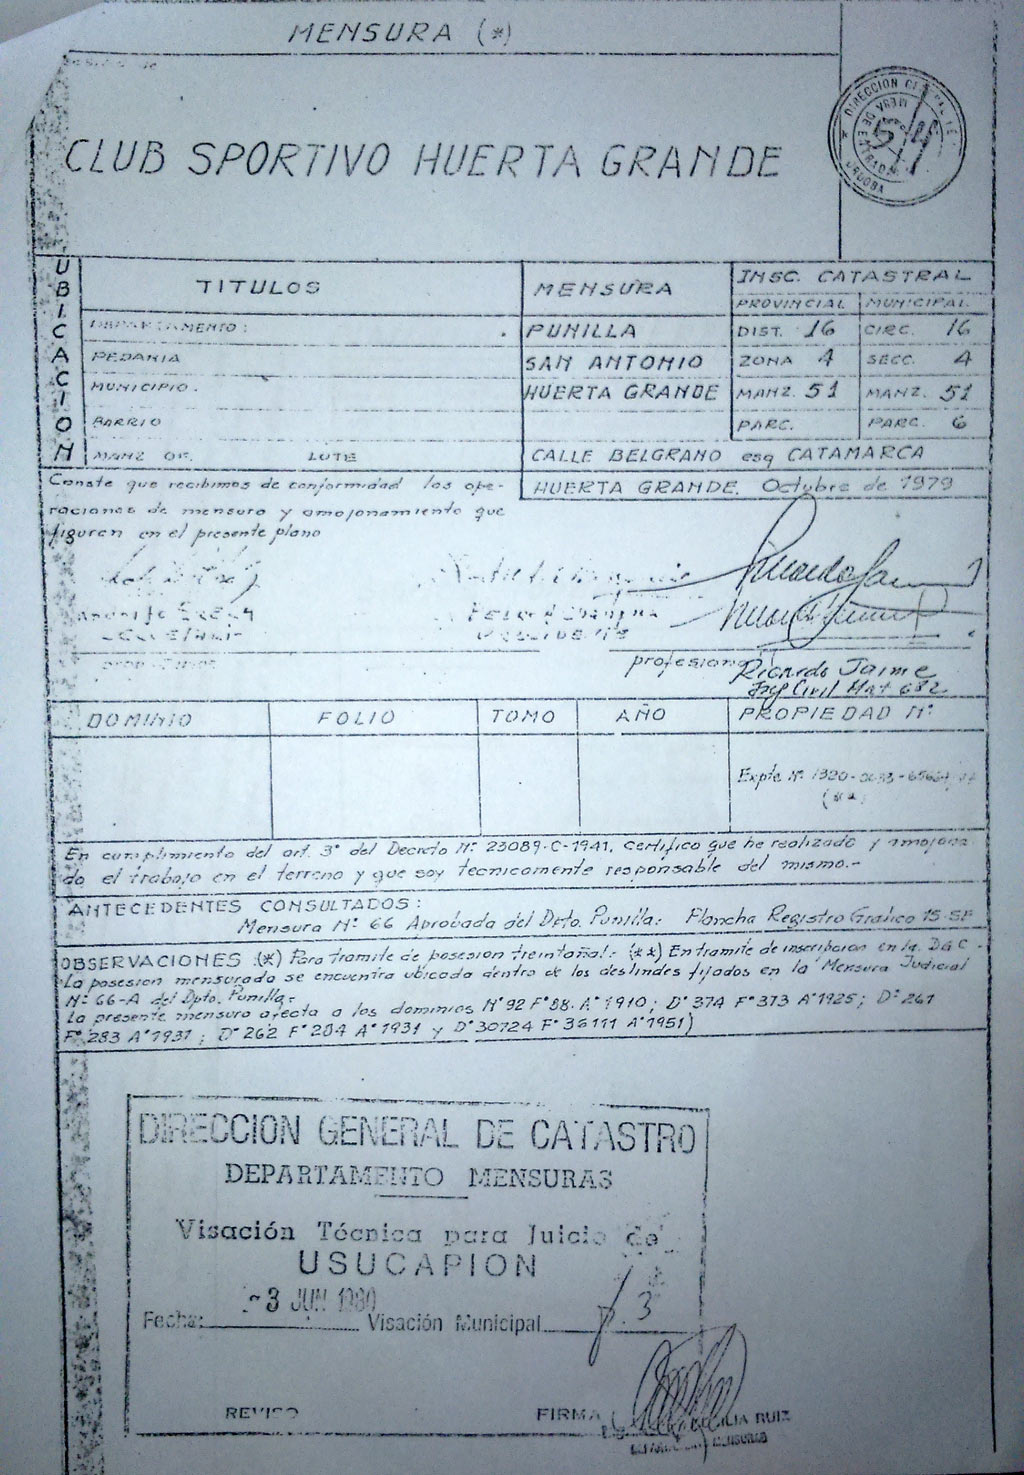 MENSURA (*)
DIRECCION
MESA DE
ENTRADAS
CLUB SPORTIVO HUERTA GRANDE
UBICACION
TITULOS
MENSURA
INSC. CATASTRAL
PROVINCIAL MUNICIPAL
DEPARTAMENTO: PUNILLA DIST. 16 CIRC. 16
PEDANIA SAN ANTONIO ZONA 4 SECC. 4
MUNICIPIO. HUERTA GRANDE MANZ. 51 MANZ. 51
BARRIO PARC. PARC. 6
MANZ OF. LOTE CALLE BELGRANO esq CATAMARCA
Conste que recibimos de conformidad las ope-
HUERTA GRANDE. Octubre de 1979
raciones de mensura y amojonamiento que
figuran en el presente plano
PRESIDENTE
profesional
Ricardo Jaime
Ing Civil Mat 682
DOMINIO FOLIO TOMO AÑO PROPIEDAD Nº
Expte Nº 1320-
(**)
En cumplimiento del art. 3º del Decreto Nº 23089-C-1941, certifico que he realizado y amojona
do el trabajo en el terreno y que soy tecnicamente responsable del mismo.-
ANTECEDENTES CONSULTADOS:
Mensura Nº 66 Aprobada del Dpto. Punilla. Plancha Registro Grafico 15-SF
OBSERVACIONES: (*) Para tramite de posesion treintañal. (**) En tramite de inscripcion en la D G C -
La posesion mensurada se encuentra ubicada dentro de los deslindes fijados en la Mensura Judicial
Nº 66-A del Dpto. Punilla.-
La presente mensura afecta a los dominios Nº 92 Fº 88. Aº 1910; Dº 374 Fº 373 Aº 1925; Dº 261
Fº 283 Aº 1931; Dº 262 Fº 284 Aº 1931 y Dº 30724 Fº 36111 Aº 1951)
DIRECCION GENERAL DE CATASTRO
DEPARTAMENTO MENSURAS
Visación Técnica para Juicio de
USUCAPION
Fecha: -3 JUN 1980 Visación Municipal p. 3
REVISO FIRMA
CECILIA RUIZ
DEPARTAMENTO MENSURAS